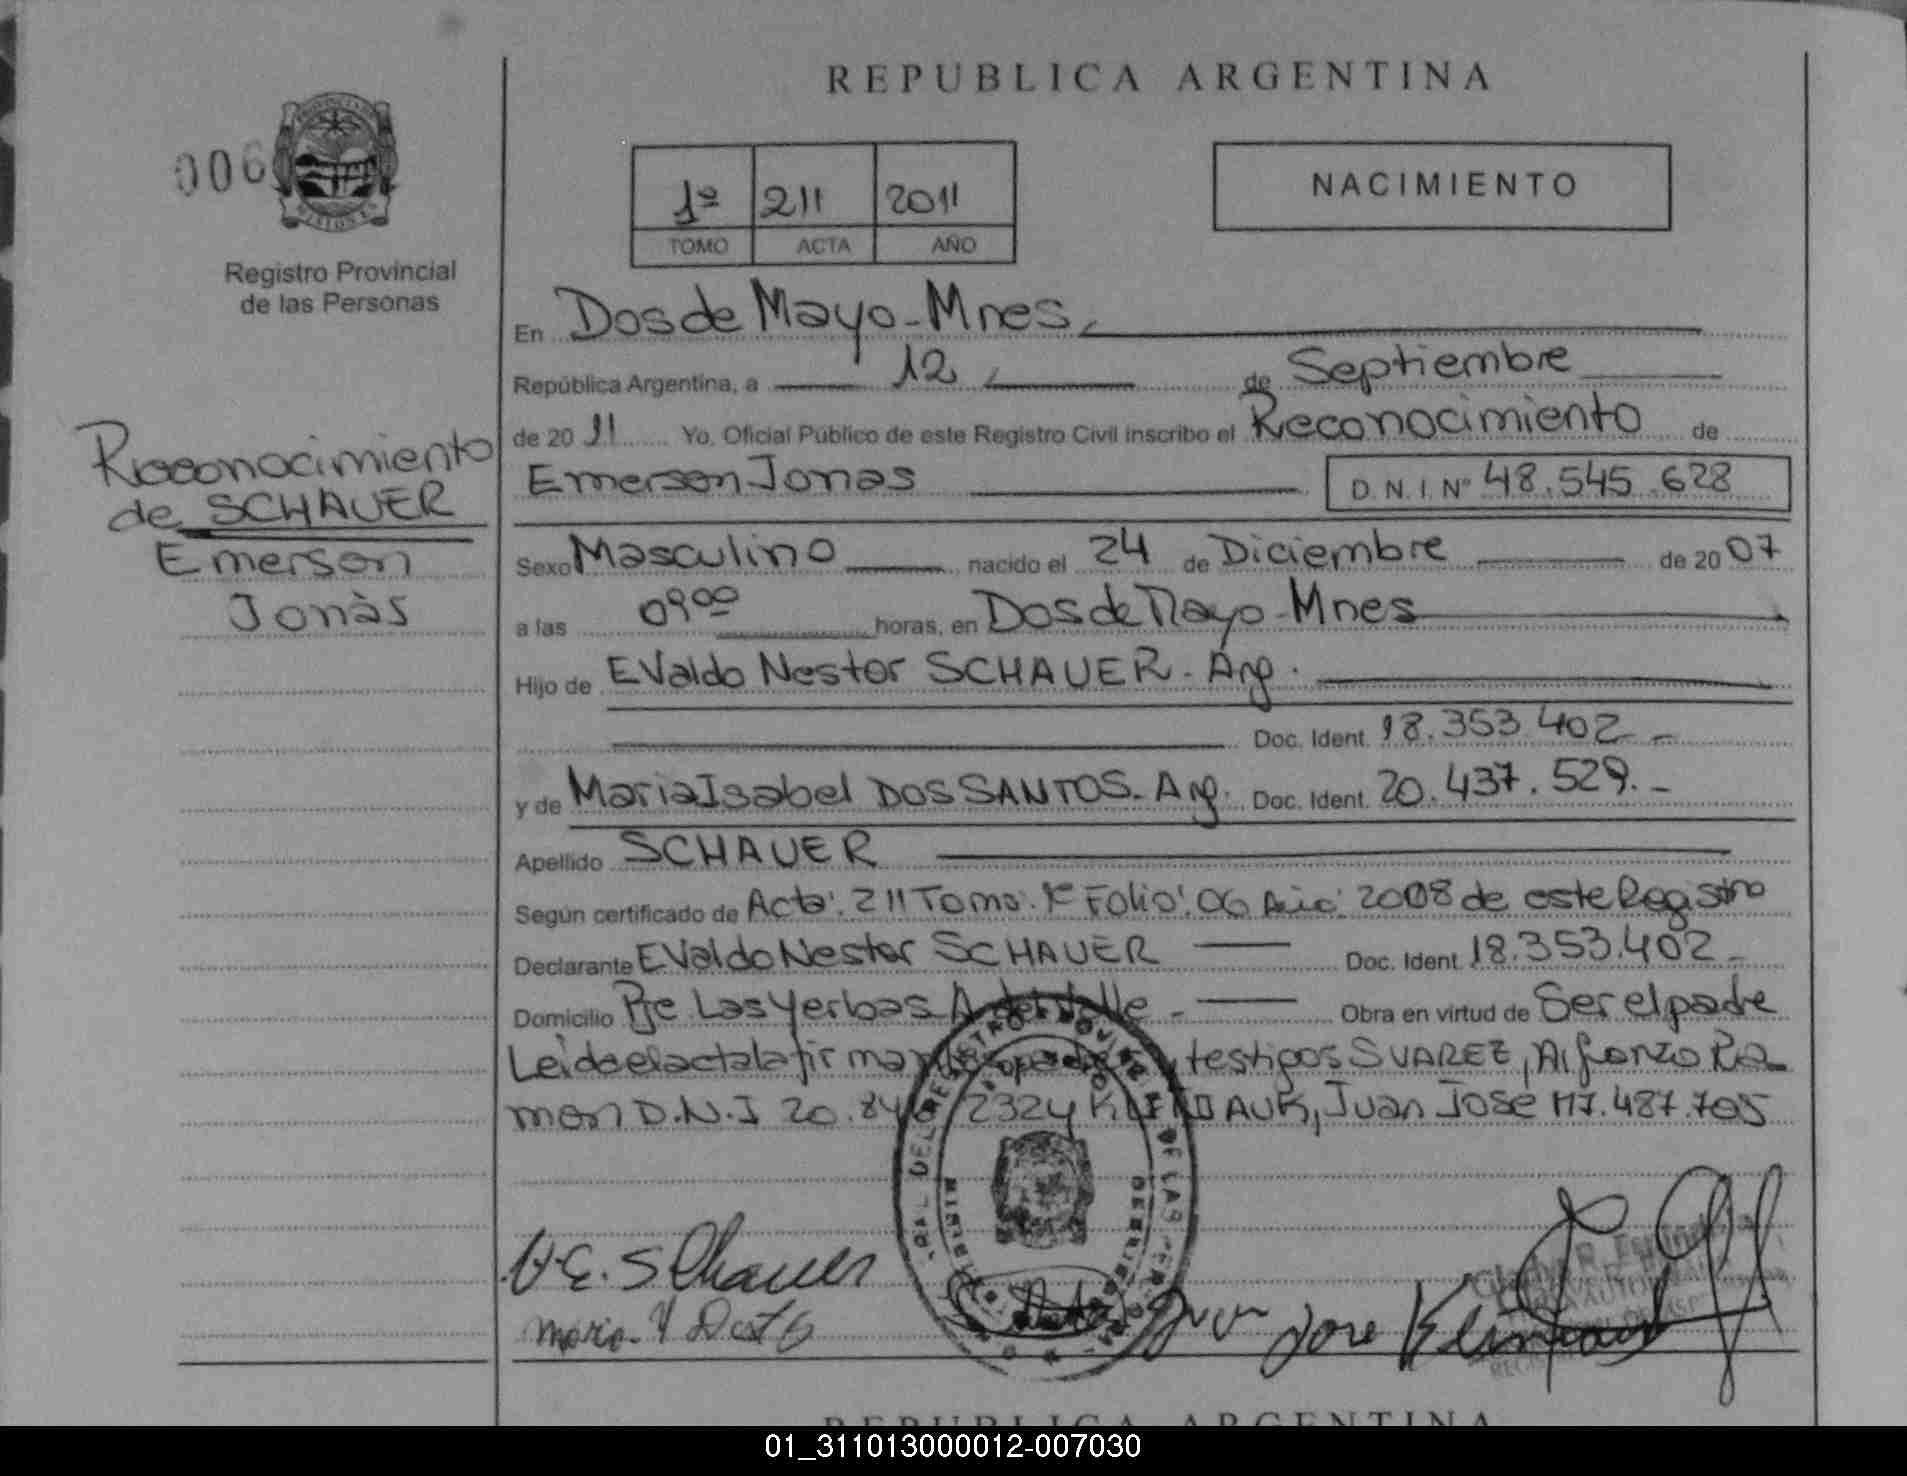 REPUBLICA ARGENTINA
006
Registro Provincial
de las Personas
1º 211 2011
TOMO ACTA AÑO
NACIMIENTO
En Dos de Mayo - Mnes,
República Argentina, a 12, de Septiembre
de 20 11 Yo, Oficial Público de este Registro Civil inscribo el Reconocimiento de
Emerson Jonas D.N.I. Nº 48.545.628
Reconocimiento
de SCHAUER
Emerson
Jonàs
Sexo Masculino nacido el 24 de Diciembre de 20 07
a las 09 00 horas, en Dos de Mayo - Mnes
Hijo de EValdo Nestor SCHAUER - Arg.
Doc. Ident. 18.353.402 -
y de Maria Isabel DOS SANTOS - Arg. Doc. Ident. 20.437.529. -
Apellido SCHAUER
Según certificado de Acta: 211 Tomo: 1º Folio: 06 Año: 2008 de este Registro
Declarante EValdo Nestor SCHAUER Doc. Ident. 18.353.402 -
Domicilio Pje Las Yerbas A. del Valle - Obra en virtud de Ser el padre
Leida el acta la firman testigos SUAREZ, Alfonzo Ra-
mon D.N.I 20. Juan Jose M7.487.705
Schauer
Juan Jose
REPUBLICA ARGENTINA
01_311013000012-007030